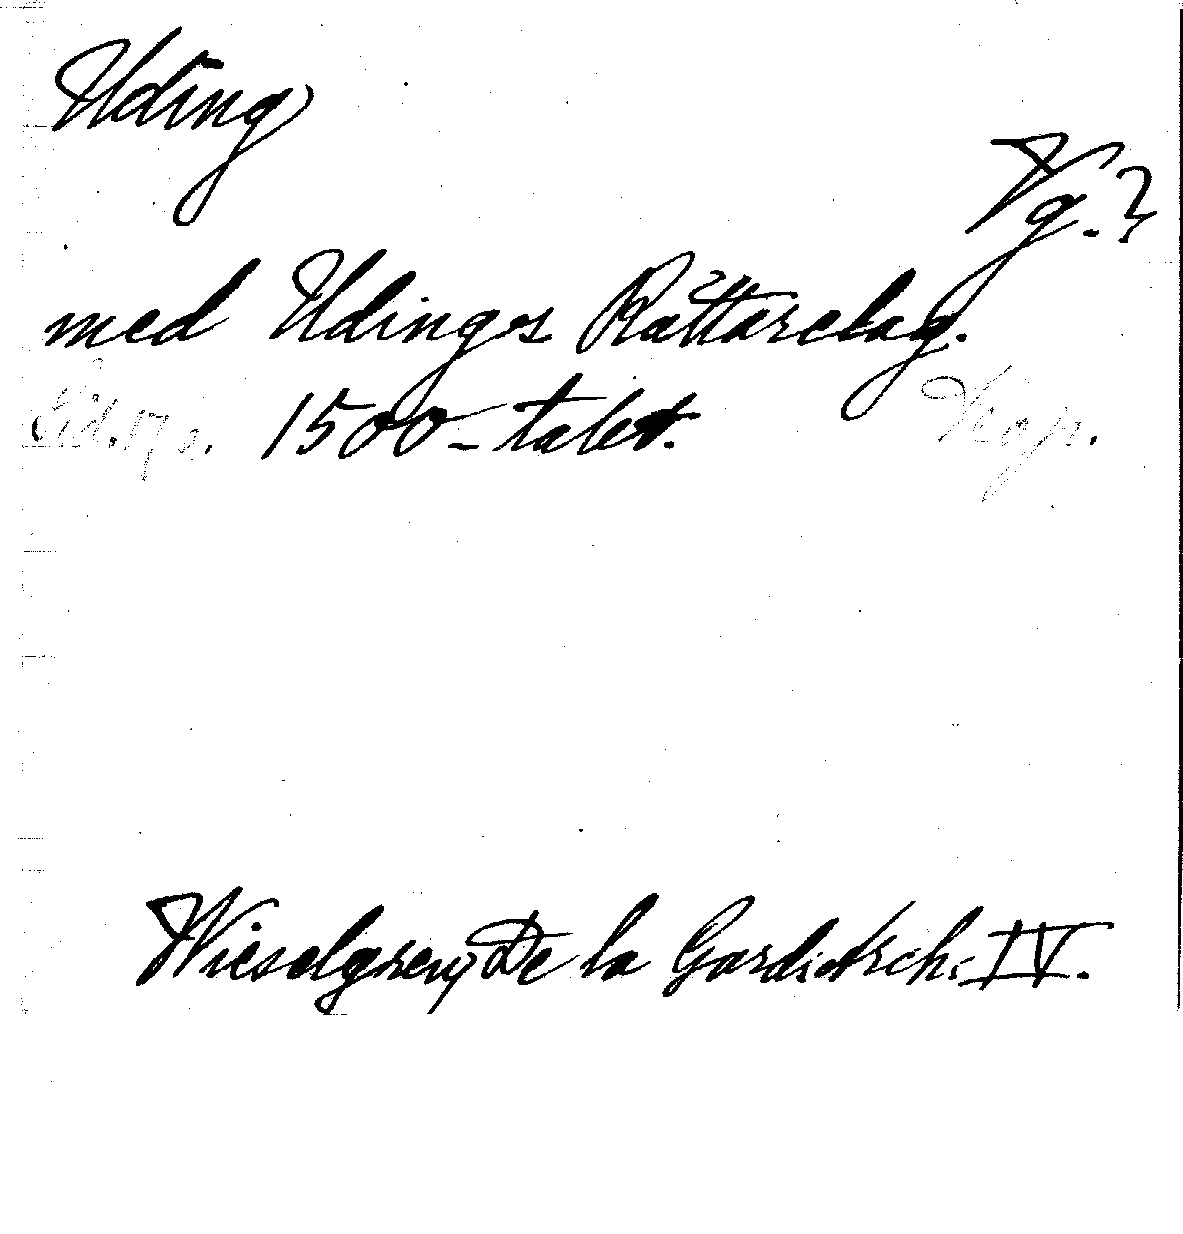 Uding
Vg.?
med Udings Råttarelag.
1500-talet. Kop.
Wieselgren, De la Gardiarch. IV.